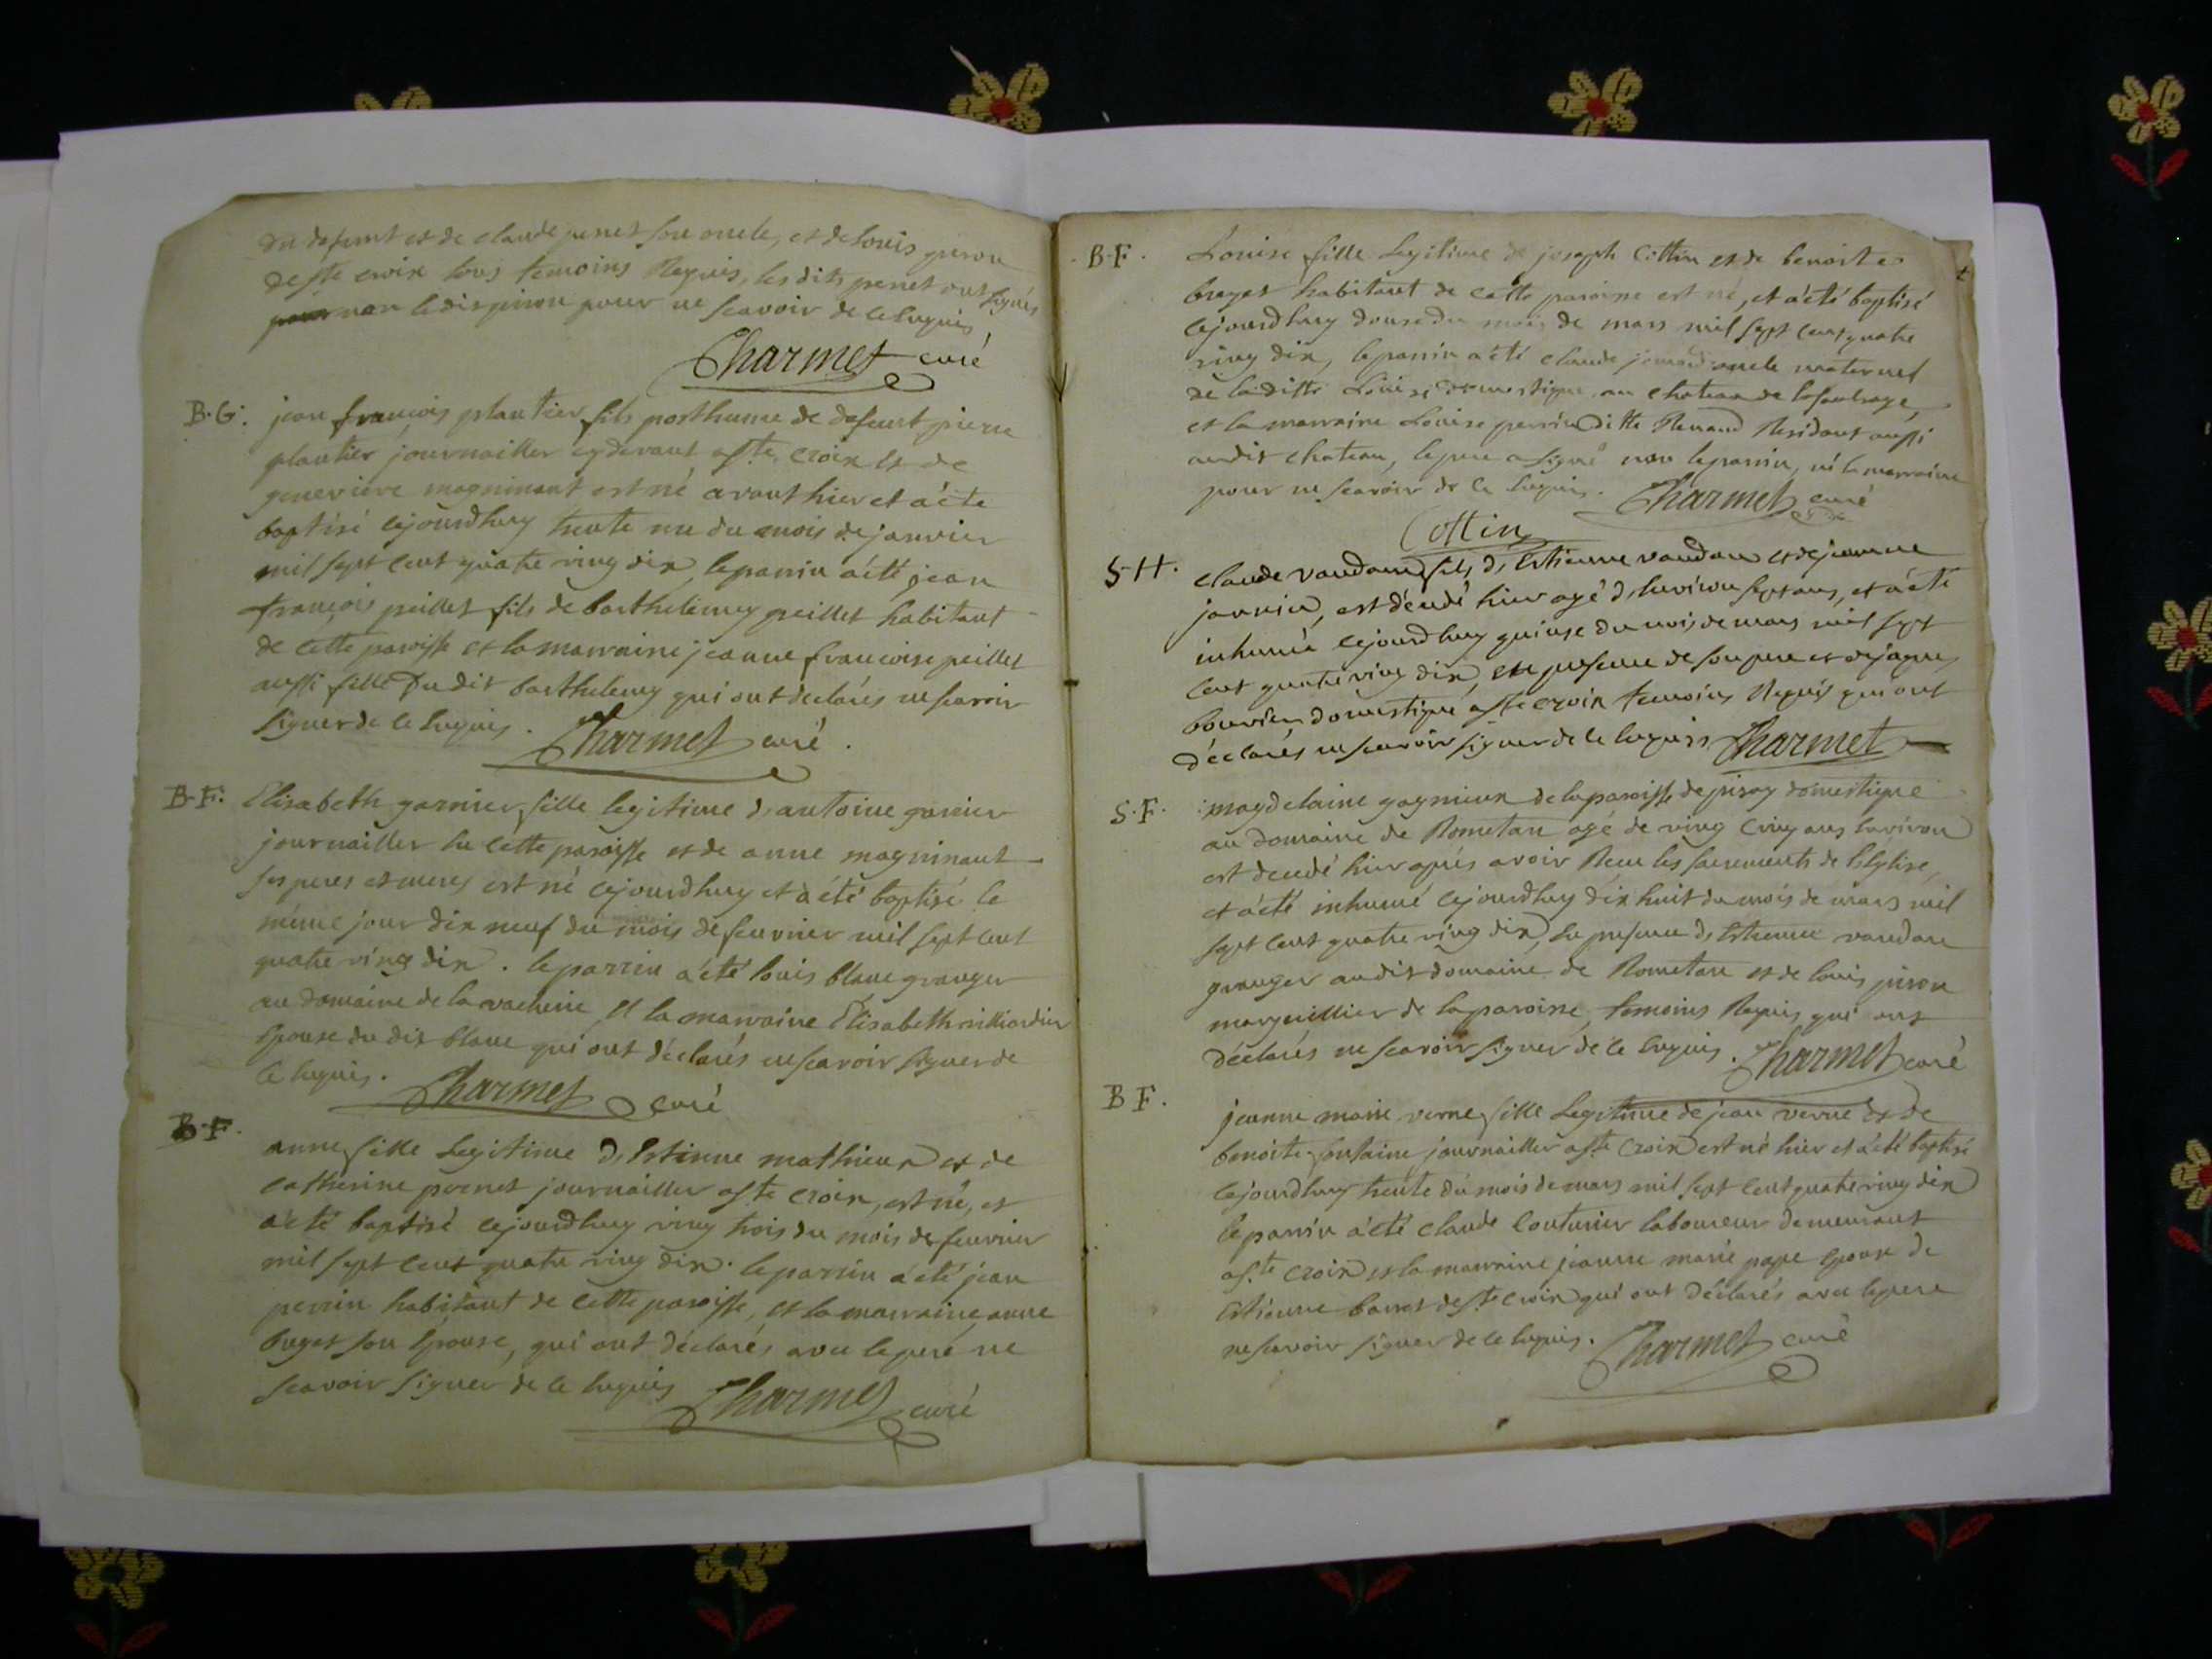 du defunt et de claude penet son oncle, et de Louis pison
de ste croix tous temoins Requis, les dits penet ont signés
non le dis pison pour ne scavoir de ce Enquis
Charmet curé
B. G. jean françois plantier fils posthume de defunt pierre
plantier journailler cydevant a ste croix et de
genevieve magninant est né avant hier et a été
baptisé cejourdhuy trente un du mois de janvier
mil sept cent quatre ving dix, le parrin a été jean
françois peillet fils de barthelemy peillet habitant
de cette paroisse et la marraine jeanne francoise peillet
aussi fille du dit barthelemy qui ont déclarés ne scavoir
signer de ce Enquis. Charmet curé.
B. F. Elisabeth garnier fille legitime d'antoine garnier
journailler En cette paroisse et de anne magninant
ses peres et meres est né cejourdhuy et a été baptisé le
même jour dix neuf du mois de fevrier mil sept cent
quatre ving dix. le parrin a été louis blanc granger
au domaine de la vacherie, et la marraine Elisabeth
Epouse du dit blanc qui ont déclarés ne scavoir signer de
ce Enquis. Charmet curé
B. F.
anne fille Legitime d'Estienne mathieux et de
catherine pernet journailler a ste croix, est né, et
a été baptisé cejourdhuy ving trois du mois de fevrier
mil sept cent quatre ving dix. le parrin a été jean
perrin habitant de cette paroisse, et la marraine anne
buget son Epouse, qui ont déclarés avec le peré ne
scavoir signer de ce Enquis Charmet curé
B. F. Louise fille Legitime de joseph Cottin et de benoite
habitant de cette paroisse est né, et a été baptisé
cejourdhuy douse du mois de mars mil sept cent quatre
ving dix, le parrin a été claude oncle maternel
de la ditte Louise domestique au chateau de
et la marraine Louise perrin ditte Renaud Residant aussi
audit chateau, le pere a signé non le parrin, ni la marraine
pour ne scavoir de ce Enquis. Charmet curé
Cottin
S. H. claude vaudan fils d'Estienne vaudan et de jeanne
janvier, est décedé hier agé d'Environ sept ans, et a été
inhumé cejourdhuy quinse du mois de mars mil sept
cent quatre ving dix, en presence de son pere et de jaques
bouvier domestique a ste croix temoins Requis qui ont
déclarés ne scavoir signer de ce Enquis Charmet
S. F. magdelaine gagnieux de la paroisse de pisay domestique
au domaine de Rometan agé de ving cinq ans Environ
est decedé hier aprés avoir Recu les sacrements de l'Eglise,
et a été inhumé cejourdhuy dix huit du mois de mars mil
sept cent quatre ving dix, En presence d'Estienne vaudan
granger audit domaine de Rometan et de louis pison
marguillier de la paroisse, temoins Requis qui ont
déclarés ne scavoir signer de ce Enquis. Charmet curé
B F.
jeanne marie verne fille Legitime de jean verne et de
benoite fontaine journailler a ste Croix est né hier et a été baptisé
cejourdhuy trente du mois de mars mil sept cent quatre ving dix
le parrin a été claude Couturier laboureur demeurant
a ste croix et la marraine jeanne marie pape Epouse de
Estienne de ste croix qui ont déclarés avec le pere
ne scavoir signer de ce Enquis. Charmet curé